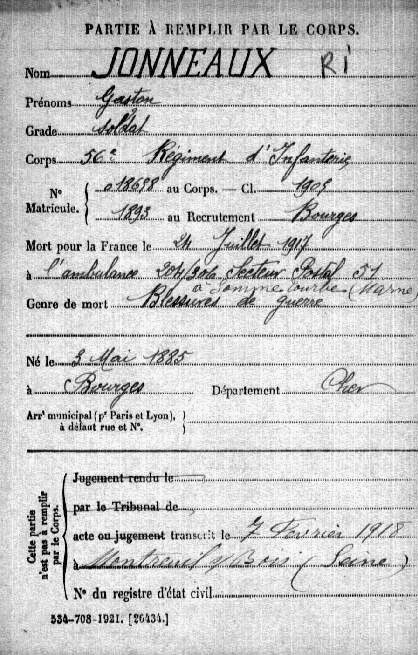 PARTIE À REMPLIR PAR LE CORPS.
Nom JONNEAUX RI
Prénoms Gaston
Grade soldat
Corps 56e Régiment d'Infanterie
N° Matricule. { 018698 au Corps. — Cl. 1905
1893 au Recrutement Bourges
Mort pour la France le 24 Juillet 1917
à l'ambulance 204/306 Secteur Postal 51
à Somme Tourbe (Marne)
Genre de mort Blessures de guerre
Né le 3 Mai 1885
à Bourges Département Cher
Arrt municipal (pr Paris et Lyon),
à défaut rue et N°.
Cette partie n'est pas à remplir par le Corps.
Jugement rendu le
par le Tribunal de
acte ou jugement transcrit le 7 Février 1918
à Montreuil s/ Bois (Seine)
N° du registre d'état civil
534-708-1921. [26434.]